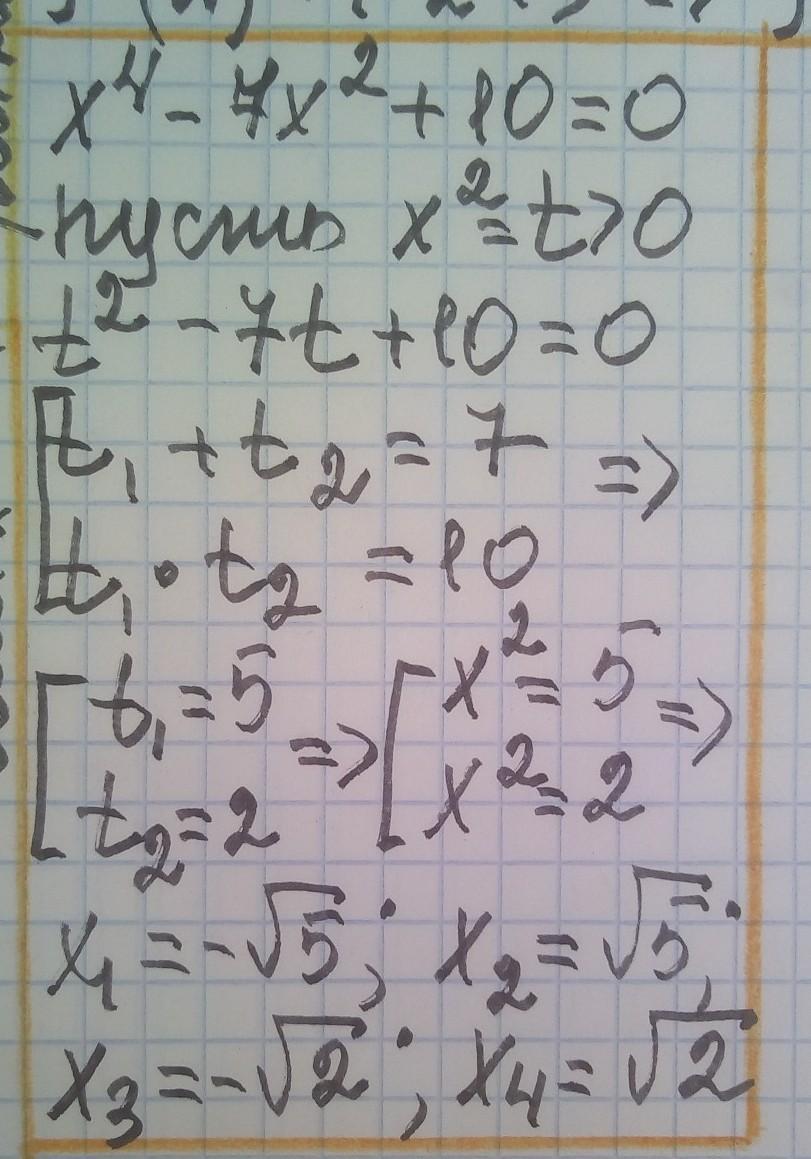 x⁴ - 7x² + 10 = 0
пусть x² = t > 0
t² - 7t + 10 = 0
[ t₁ + t₂ = 7 =>
t₁ • t₂ = 10
[ t₁ = 5 => [ x² = 5 =>
t₂ = 2 x² = 2
x₁ = -√5; x₂ = √5;
x₃ = -√2; x₄ = √2